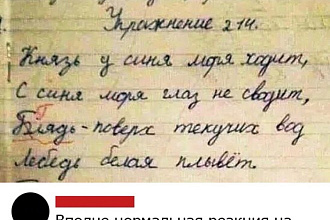 Упражнение 214.
Князь у синя моря ходит,
С синя моря глаз не сводит,
Г
Блядь-поверх текучих вод
Лебедь белая плывёт.
Вполне нормальная реакция на